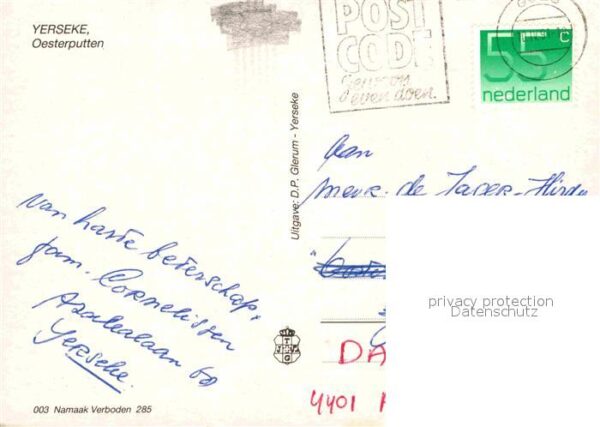 YERSEKE,
Oesterputten
POST
CODE
Gewoon
even doen.
55 c
nederland
Uitgave: D.P. Glerum - Yerseke
Aan
Mevr. de Jager-
van harte beterschap,
fam. Cornelissen
Azalealaan 60
Yerseke.
privacy protection
Datenschutz
DA
4401
003 Namaak Verboden 285